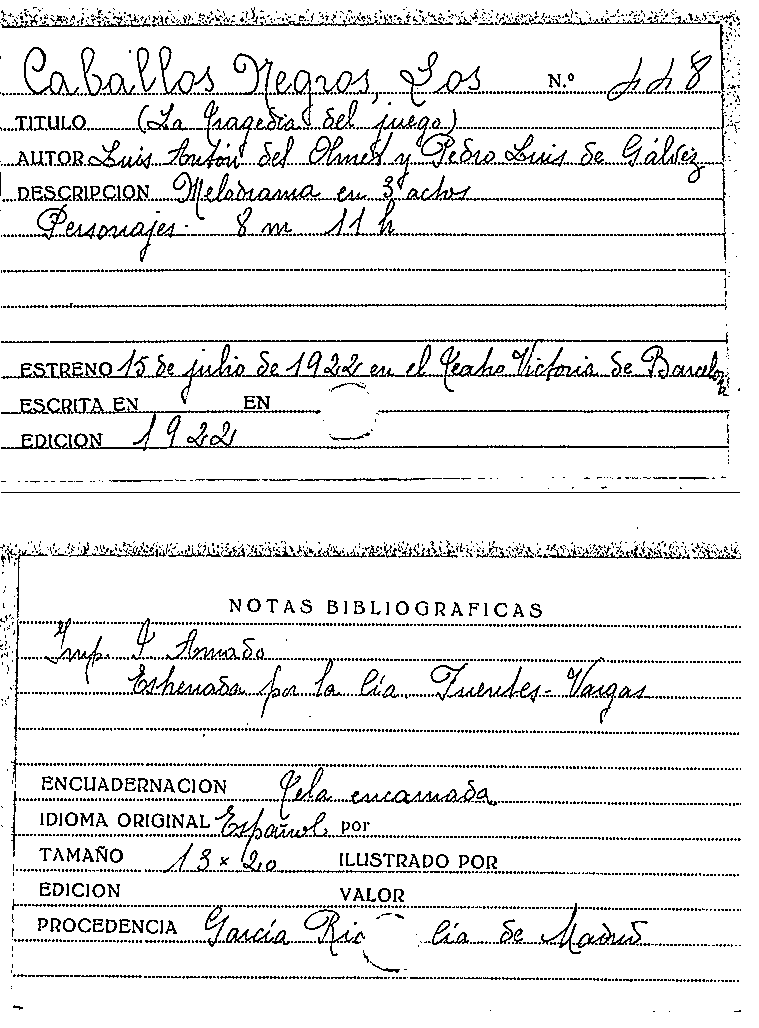 Caballos Negros, Los N.º 448
TITULO (La tragedia del juego)
AUTOR Luis Antón del Olmet y Pedro Luis de Gálvez
DESCRIPCION Melodrama en 3 actos
Personajes. 8 m 11 h
ESTRENO 15 de julio de 1922 en el Teatro Victoria de Barcelona
ESCRITA EN EN
EDICION 1922
NOTAS BIBLIOGRAFICAS
Imp. Amado
Estrenada por la Cía. Fuentes-Vargas
ENCUADERNACION Tela encarnada
IDIOMA ORIGINAL Español por
TAMAÑO 13 × 20 ILUSTRADO POR
EDICION VALOR
PROCEDENCIA García Ric Cía de Madrid